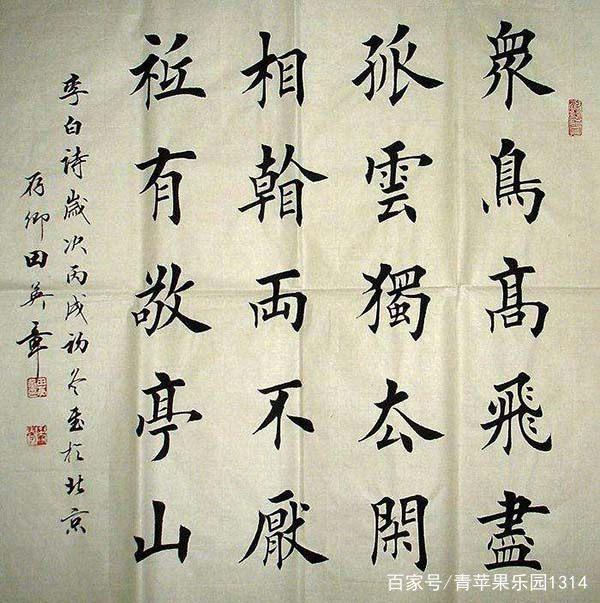 衆鳥髙飛盡
孤雲獨厺閑
相看両不厭
祗有敬亭山
李白詩歲次丙戌初冬書於北京
存卿田英章
百家号/青苹果乐园1314